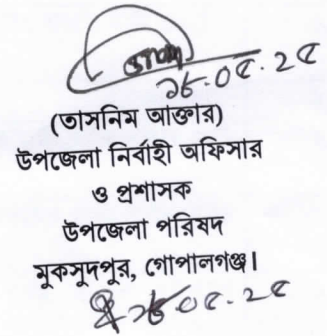 ২৮.০৫.২৫
(তাসনিম আক্তার)
উপজেলা নির্বাহী অফিসার
ও প্রশাসক
উপজেলা পরিষদ
মুকসুদপুর, গোপালগঞ্জ।
২৮.০৫.২৫